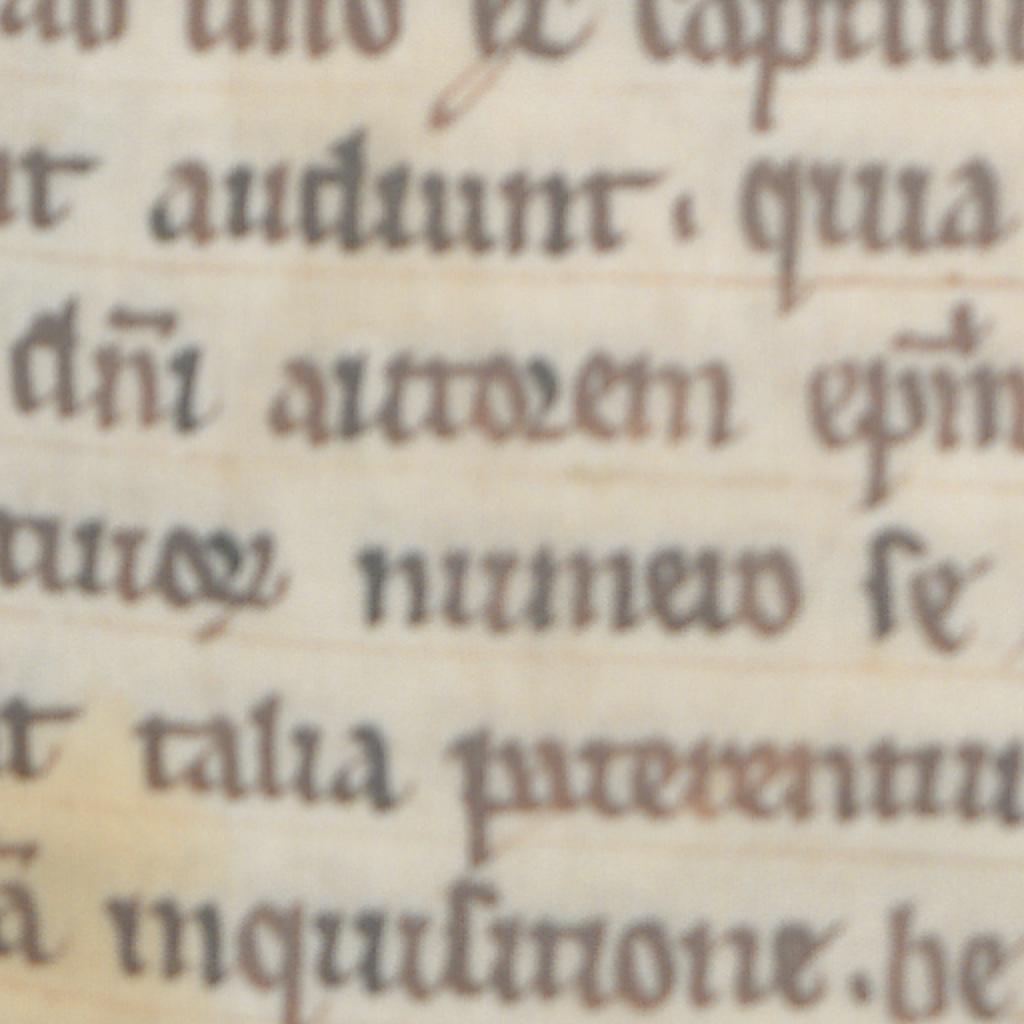 ab uno et capitul
ut audiunt. qua
dn̄i auctorem ep̄m
numero se
t talia puterentur
ā inquisitione. be